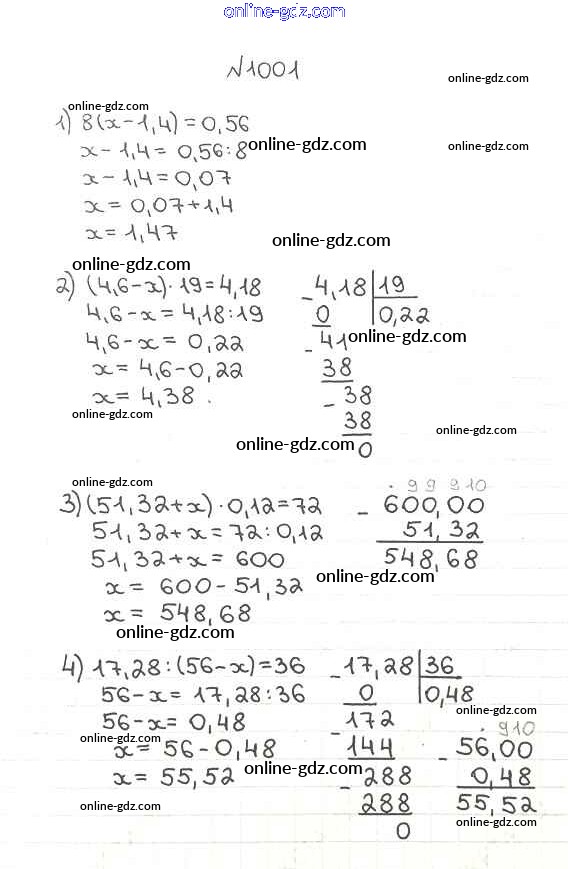 online-gdz.com
№1001
online-gdz.com
online-gdz.com
1) 8(x-1,4)=0,56
x-1,4=0,56:8 online-gdz.com
online-gdz.com
x-1,4=0,07
x=0,07+1,4
x=1,47
online-gdz.com
online-gdz.com
2) (4,6-x)·19=4,18
4,6-x=4,18:19
4,6-x=0,22
x=4,6-0,22
x=4,38.
online-gdz.com
- 4,18 | 19
0 | 0,22
- 41 online-gdz.com
38
- 38
38
0
online-gdz.com
online-gdz.com
online-gdz.com
3) (51,32+x)·0,12=72
51,32+x=72:0,12
51,32+x=600
x=600-51,32
x=548,68
online-gdz.com
. 9 9 9 10
- 600,00
51,32
548,68
online-gdz.com
4) 17,28:(56-x)=36
56-x=17,28:36
56-x=0,48
x=56-0,48
x=55,52 online-gdz.com
online-gdz.com
- 17,28 | 36
0 | 0,48
- 172 online-gdz.com
144
- 288
288
0
. 9 10
- 56,00
0,48
55,52
online-gdz.com